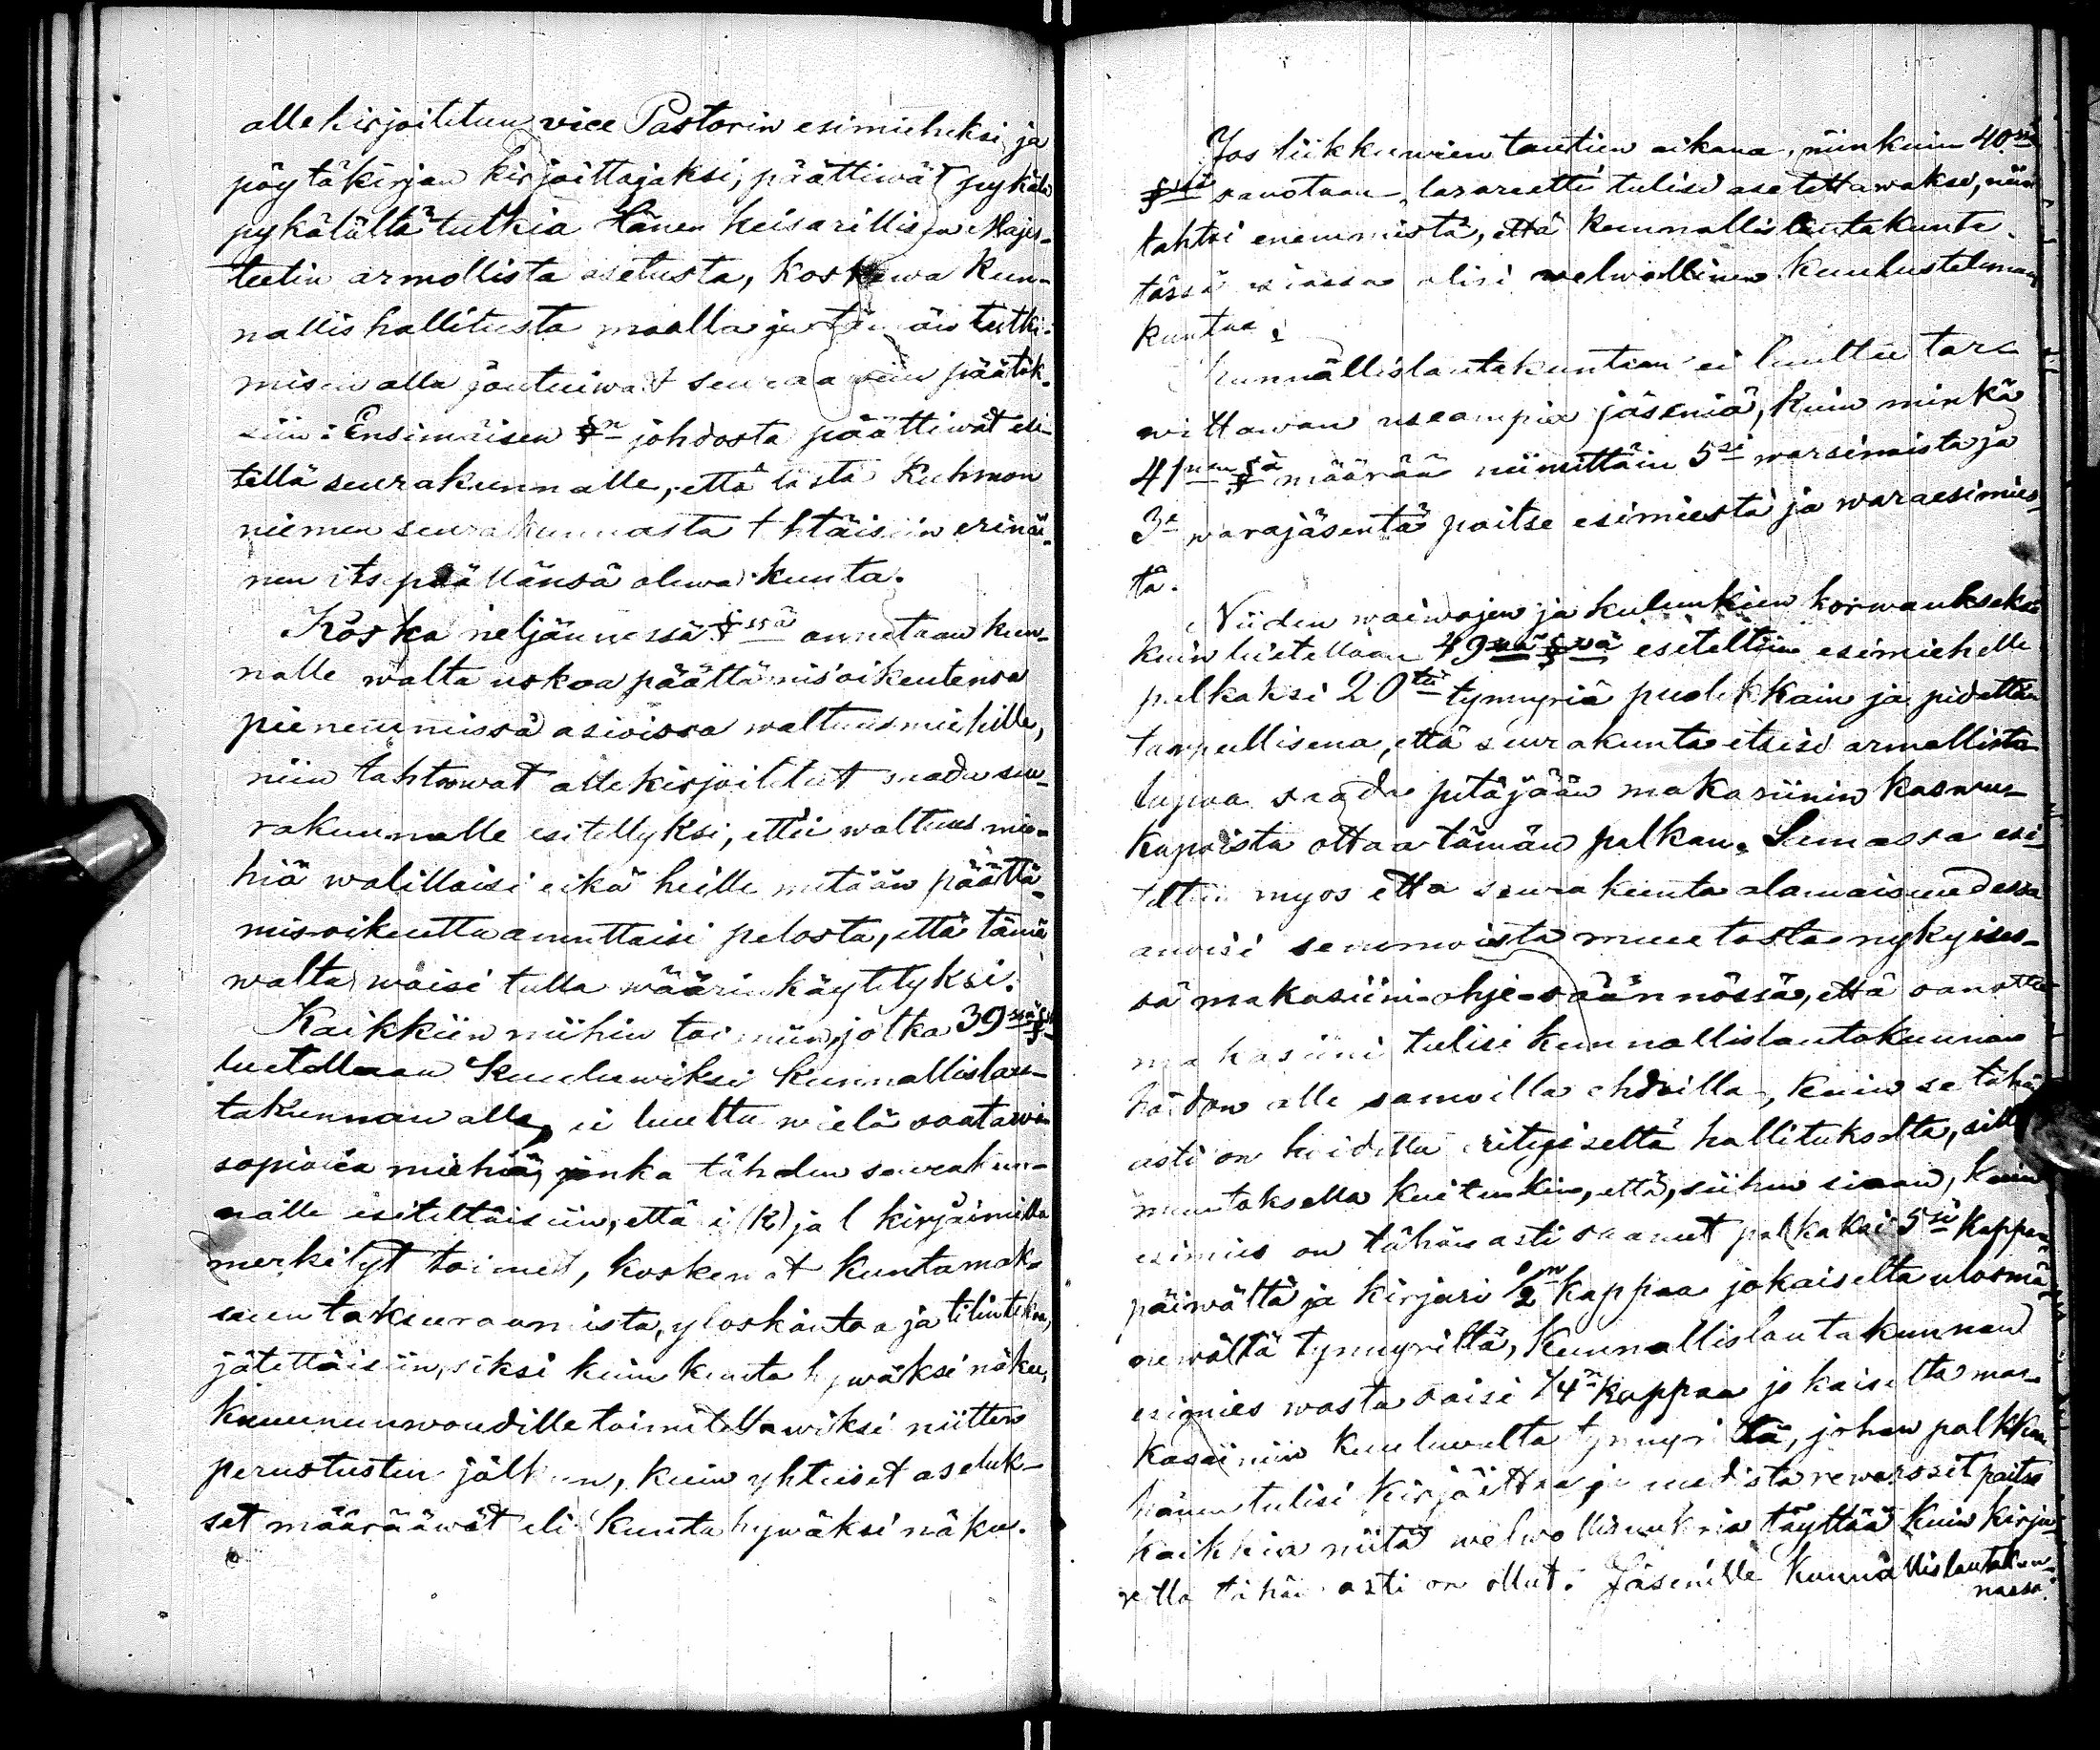 allekirjoitetun vice Pastorin esimieheksi ja
pöytäkirjan kirjoittajaksi, päättiwät pykälä
pykälältä tutkia Hänen Keisarillisen Majes-
teetin armollista asetusta, koskewa kun-
nallishallitusta maalla ja tämän tutki-
misen alla joutuiwat seuraawiin päätök-
siin: Ensimäisen §n johdosta päättiwät esi-
tellä seurakunnalle, että tästä Kuhmon
niemen seurakunnasta tehtäisiin erinäi-
nen itsepäällänsä olewa kunta.
Koska neljännessä §ssä annetaan kun-
nalle walta uskoa päättämisoikeutensa
pienemmissä asioissa waltuusmiehille,
niin tahtowat allekirjoitetut saada seu-
rakunnalle esitellyksi, ettei waltuusmie-
hiä walittaisi eikä heille mitään päättä-
misoikeutta annettaisi pelosta, että tämä
walta woisi tulla wäärin käytetyksi.
Kaikkiin niihin toimiin, jotka 39ssä §ssä
luetellaan kuuluwiksi kunnallislau-
takunnan alle, ei luultu wielä saatawan
sopiwia miehiä, jonka tähden seurakun-
nalle esiteltäisiin, että i (k) ja l kirjaimilla
merkityt toimet, koskewat kuntamak-
suen takseeraamista, ylöskantoa ja tilintekoa,
jätettäisiin, siksi kuin kunta hywäksi näkee,
kruununwoudille toimitettawiksi niitten
perustusten jälkeen, kuin yhteiset asetuk-
set määrääwät eli kunta hywäksi näkee.
Jos liikkuwien tautien aikana, niinkuin 40ssä
§ssä sanotaan, lasareetti tulisi asetettawaksi, niin
tahtoi enemmistö, että kunnallislautakunta
tässä asiassa olisi welwollinen kuulustelemaan
kuntaa.
Kunnallislautakuntaan ei luultu tar-
wittawan useampia jäseniä, kuin minkä
41nen §ä määrää nimittäin 5si warsinaista ja
3e warajäsentä paitse esimiestä ja waraesimies-
tä.
Niiden waiwojen ja kulunkien korwaukseksi
kuin luetellaan 49ssä §ssä esiteltiin esimiehelle
palkaksi 20tä tynnyriä puolikkain ja pidettiin
tarpeellisena, että seurakunta etsisi armollista
lupaa saada pitäjään makasiinin kaswu-
kapoista ottaa tämän palkan. Samassa esi-
teltiin myös että seurakunta alamaisuudessa
anoisi semmoista muutosta nykyises-
sä makasiini-ohje-säännössä, että sanottu
makasiini tulisi kunnallislautakunnan
hoidon alle samoilla ehdoilla, kuin se tähän
asti on hoidettu erityiseltä hallitukselta, sillä
muutoksella kuitenkin, että, siihen siaan, kuin
esimies on tähän asti saanut palkaksi 5si kappaa
päiwältä ja kirjuri 1/2 kappaa jokaiselta ulosme-
newältä tynnyriltä, kunnallislautakunnan
esimies wasta saisi 1/4 kappaa jokaiselta ma-
kasiiniin kuuluwalta tynnyriltä, johon palkkaan
hänen tulisi kirjoittaa ja uudistaa rewerssit paitse
kaikkia niitä welwollisuuksia täyttää kuin kirju-
rilla tähän asti on ollut. Jäsenille kunnallislautakun-
nassa